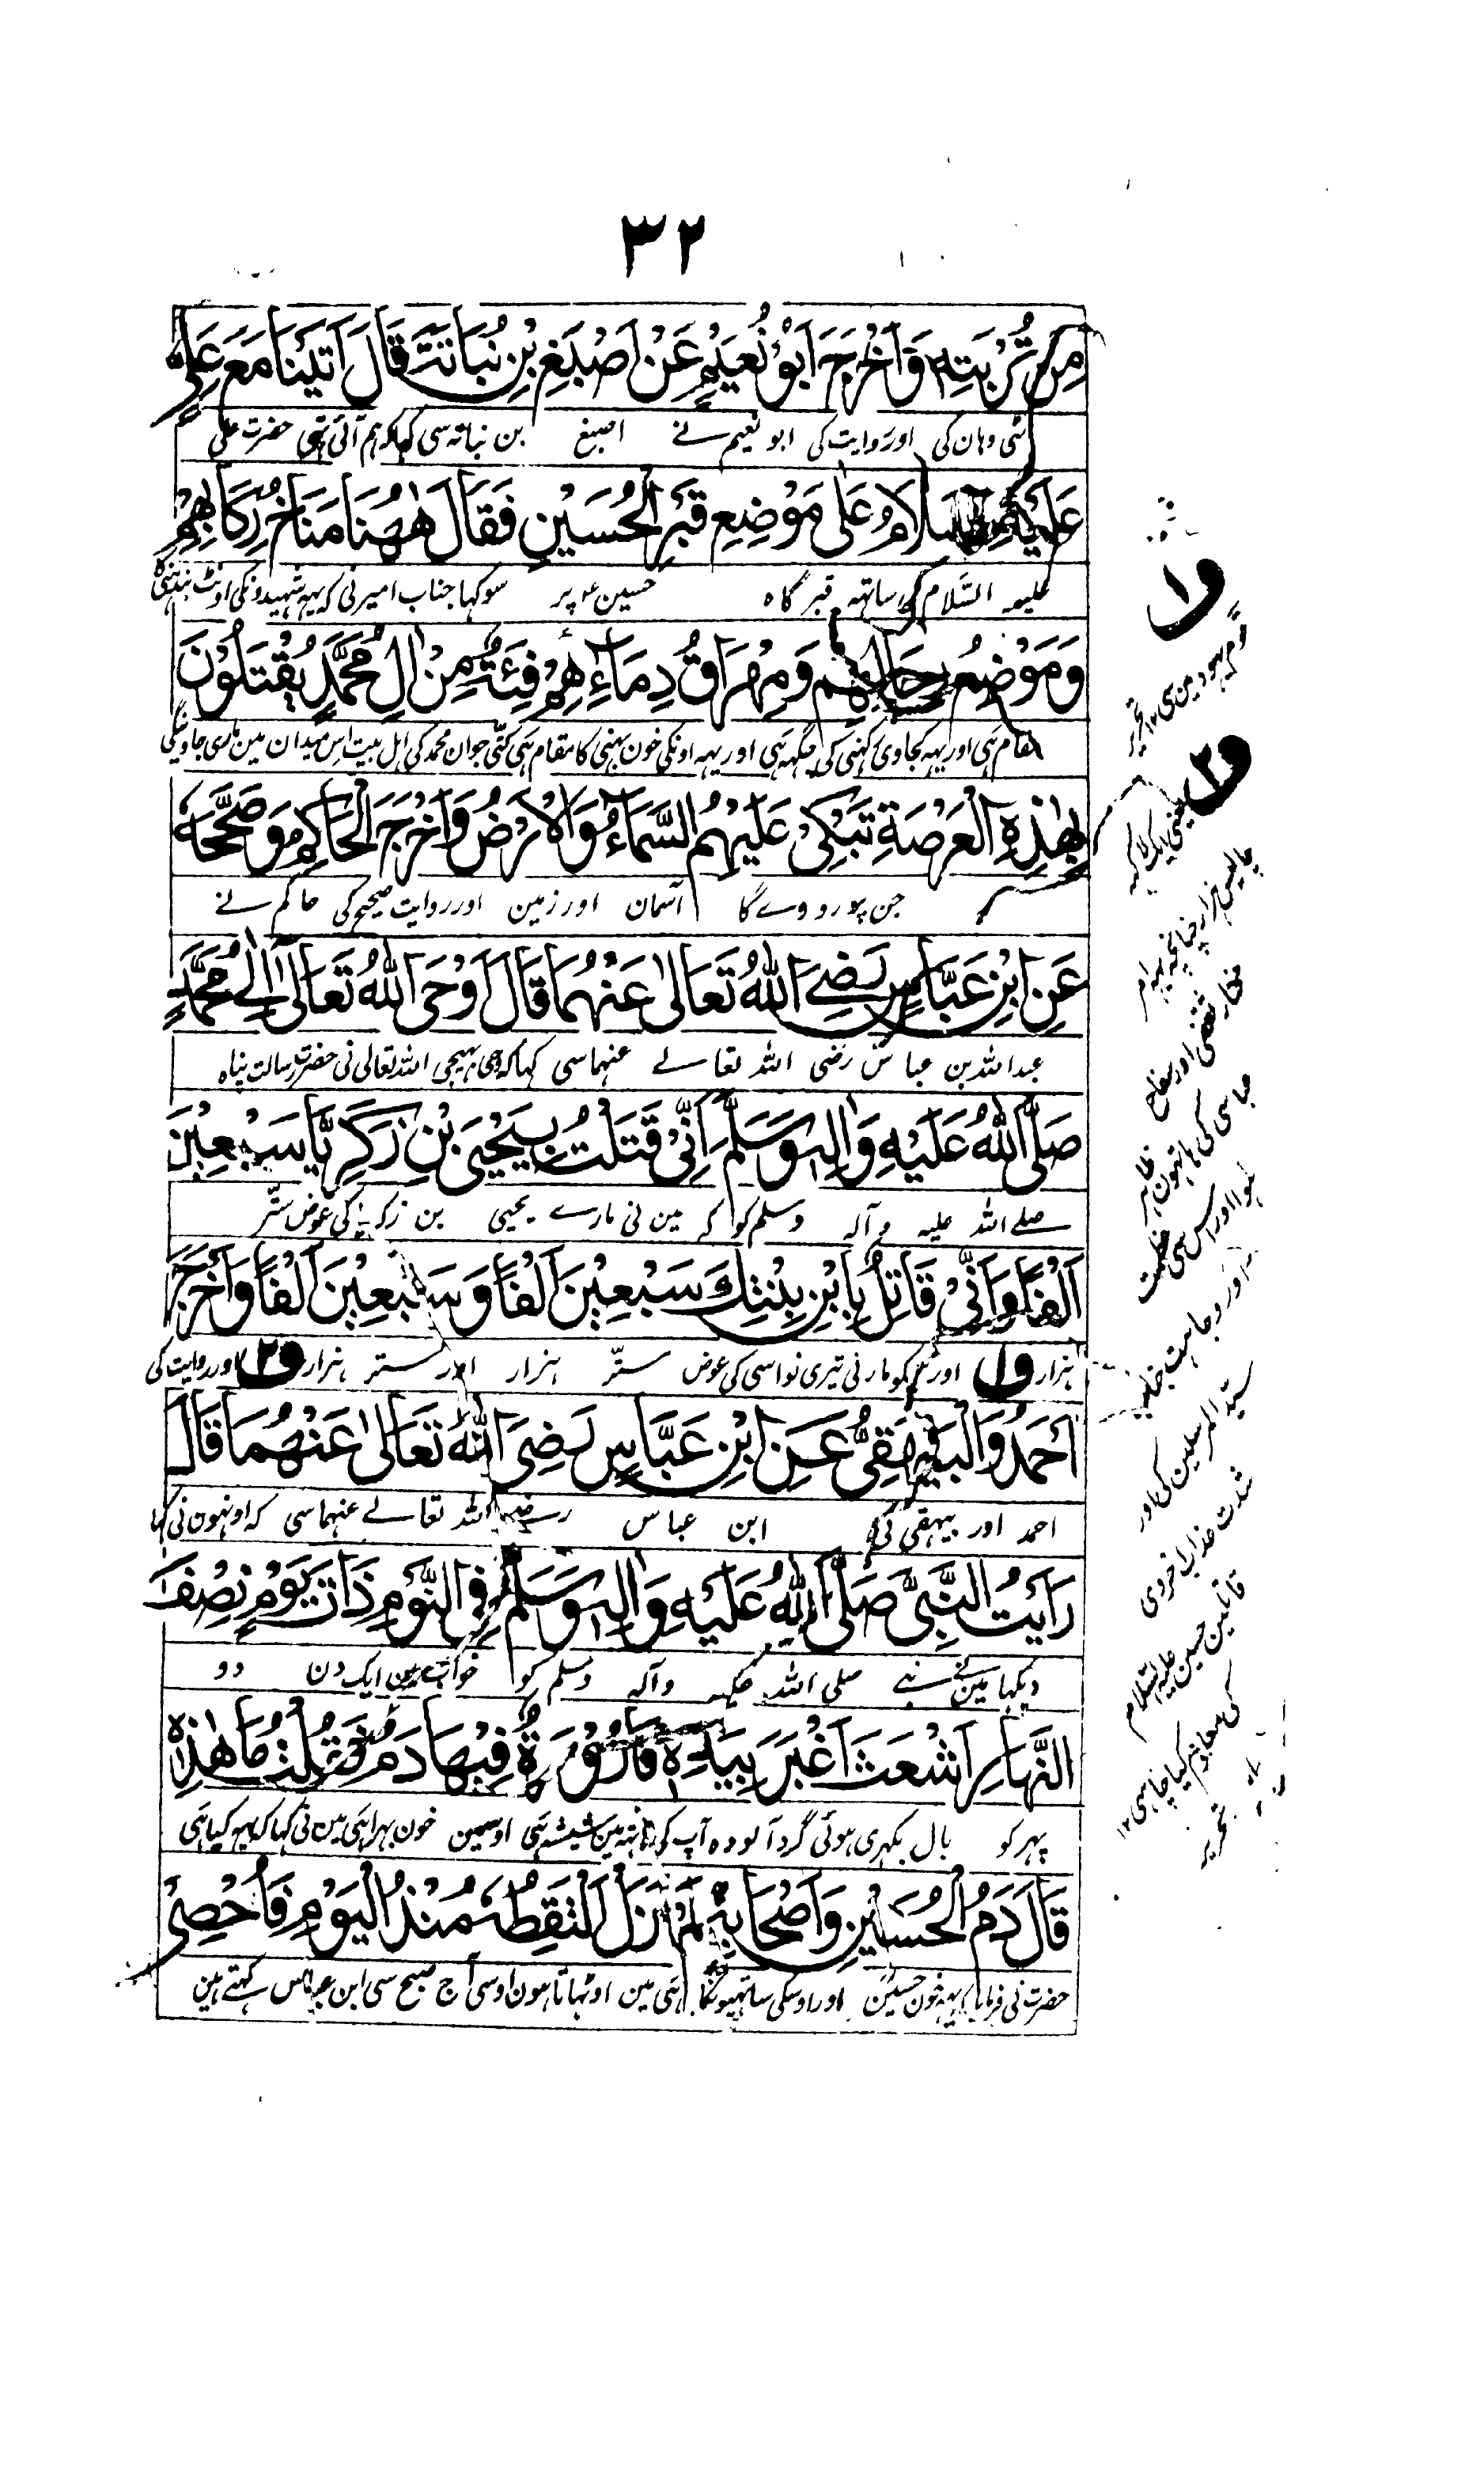 ٣٢
مِنْ تُرْبَتِهٖ وَاَخْرَجَ اَبُوْ نُعَيْمٍ عَنْ اَصْبَغِ بْنِ نُبَاتَةَ قَالَ اَتَيْنَا مَعَ عَلِيٍّ
مٹی وہان کی اور روایت کی ابو نعیم نے اصبغ بن نباتہ سی کہا کہ ہم آئی تھی حضرت علی
عَلَيْهِ السَّلَامُ عَلٰى مَوْضِعِ قَبْرِ الْحُسَيْنِ فَقَالَ هٰهُنَا مَنَاخُ رِكَابِهِمْ
علیہ السَّلام کی ساتہہ قبر گاہ حسین ع پر سو کہا جناب امیر نی کہ یہہ شہیدونکی اونٹ بندہنی کا
وَمَوْضِعُ رِحَالِهِمْ وَمِهْرَاقُ دِمَاءِهِمْ فِئَةٌ مِنْ اٰلِ مُحَمَّدٍ يُقْتَلُوْنَ
مقام ہی اور یہہ کجاوی رکہنی کی جگہہ ہی اور یہہ اونکی خون بہنی کا مقام ہی کتنی جوان محمد کی اہل بیت اس میدان مین ماری جاوینگی
بِهٰذِهِ الْعَرْصَةِ تَبْكِيْ عَلَيْهِمُ السَّمَاءُ وَالْاَرْضُ وَاَخْرَجَ الْحَاكِمُ وَصَحَّحَهٗ
جن پر رووے گا آسمان اور زمین اور روایت صحیح کی حاکم نے
عَنِ ابْنِ عَبَّاسٍ رَضِيَ اللّٰهُ تَعَالٰى عَنْهُمَا قَالَ اَوْحَى اللّٰهُ تَعَالٰى اِلٰى مُحَمَّدٍ
عبد اللہ بن عباس رضی اللہ تعالے عنہما سی کہا کہ وحی بہیجی اللہ تعالی نی حضرت رسالت پناہ
صَلَّى اللّٰهُ عَلَيْهِ وَاٰلِهٖ وَسَلَّمَ اِنِّيْ قَتَلْتُ بِيَحْيَى بْنِ زَكَرِيَّا سَبْعِيْنَ
صلے اللہ علیہ وآلہ وسلم کو کہ مین نی مارے یحیی بن زکریا کی عوض ستّر
اَلْفًا وَاِنِّيْ قَاتِلٌ بِابْنِ بِنْتِكَ سَبْعِيْنَ اَلْفًا وَسَبْعِيْنَ اَلْفًا وَاَخْرَجَ
ہزار ف۱ اور مجکو مارنی تیری نواسی کی عوض ستّر ہزار اور ستر ہزار ف۲ اور روایت کی
اَحْمَدُ وَالْبَيْهَقِيُّ عَنِ ابْنِ عَبَّاسٍ رَضِيَ اللّٰهُ تَعَالٰى عَنْهُمَا قَالَ
احمد اور بیہقی نی ابن عباس رضی اللہ تعالے عنہما سی کہ اونہون نی کہا
رَاَيْتُ النَّبِيَّ صَلَّى اللّٰهُ عَلَيْهِ وَاٰلِهٖ وَسَلَّمَ فِي النَّوْمِ ذَاتَ يَوْمٍ نِصْفَ
دیکہا مین نے نبی صلی اللہ علیہ وآلہ وسلم کو خواب مین ایک دن دو
النَّهَارِ اَشْعَثَ اَغْبَرَ بِيَدِهٖ قَارُوْرَةٌ فِيْهَا دَمٌ فَقُلْتُ مَا هٰذِهٖ
پہر کو بال بکہری ہوئی گرد آلودہ آپ کی ہاتہہ مین شیشہ ہی اوسمین خون بہرا ہی مین نی کہا کہ یہہ کیا ہی
قَالَ دَمُ الْحُسَيْنِ وَاَصْحَابِهٖ لَمْ اَزَلْ اَلْتَقِطُهٗ مُنْذُ الْيَوْمِ فَاُحْصِيَ
حضرت نی فرمایا یہہ خون حسین اور اوسکی ساتہیونکا ہی مین اوٹہاتا ہون اوسی آج صبح سی ابن عباس کہتے ہین
ف۱
ف۲
یعنی ایک لاکہہ
چالیس ہزار چنانچہ یہہ امر
مختار ثقفی اور سفاح
عباسی کی ہاتہون ظاہر
ہوا اور اس سی عظمت
اور وجاہت
سیّد المرسلین کی اور
شدت عذاب اخروی
قاتلین حسین علیہ السّلام
کی معلوم کیا چاہی ۱۲